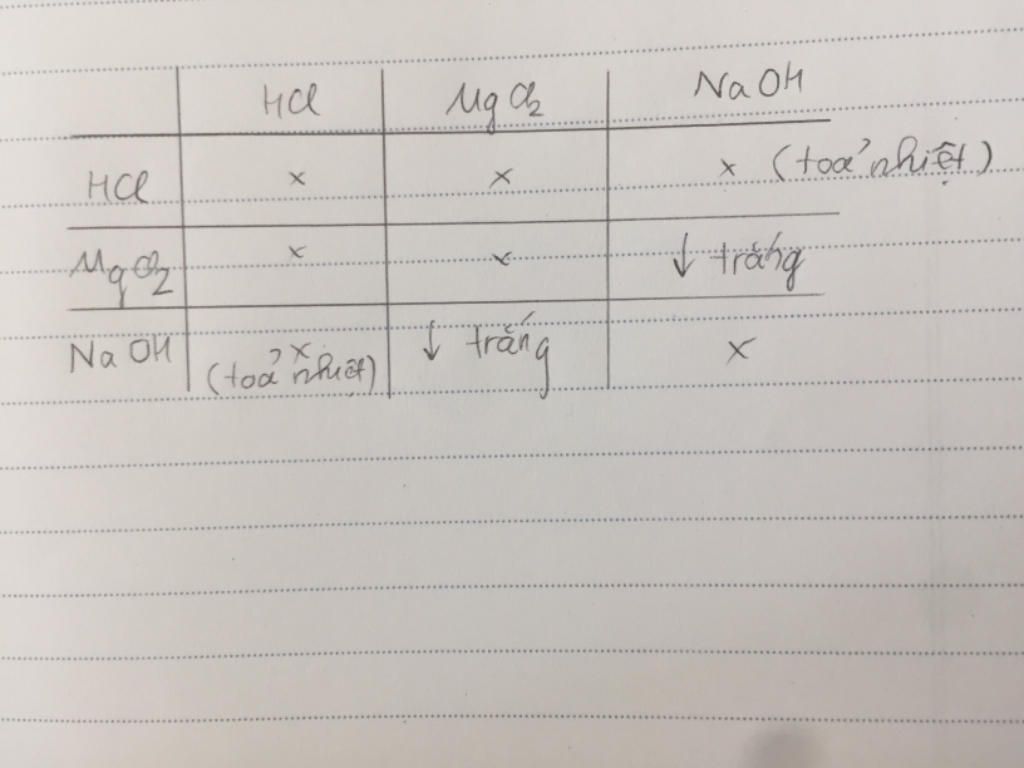 HCl MgCl2 NaOH
HCl x x x (toả nhiệt)
MgCl2 x x ↓ trắng
NaOH x (toả nhiệt) ↓ trắng x